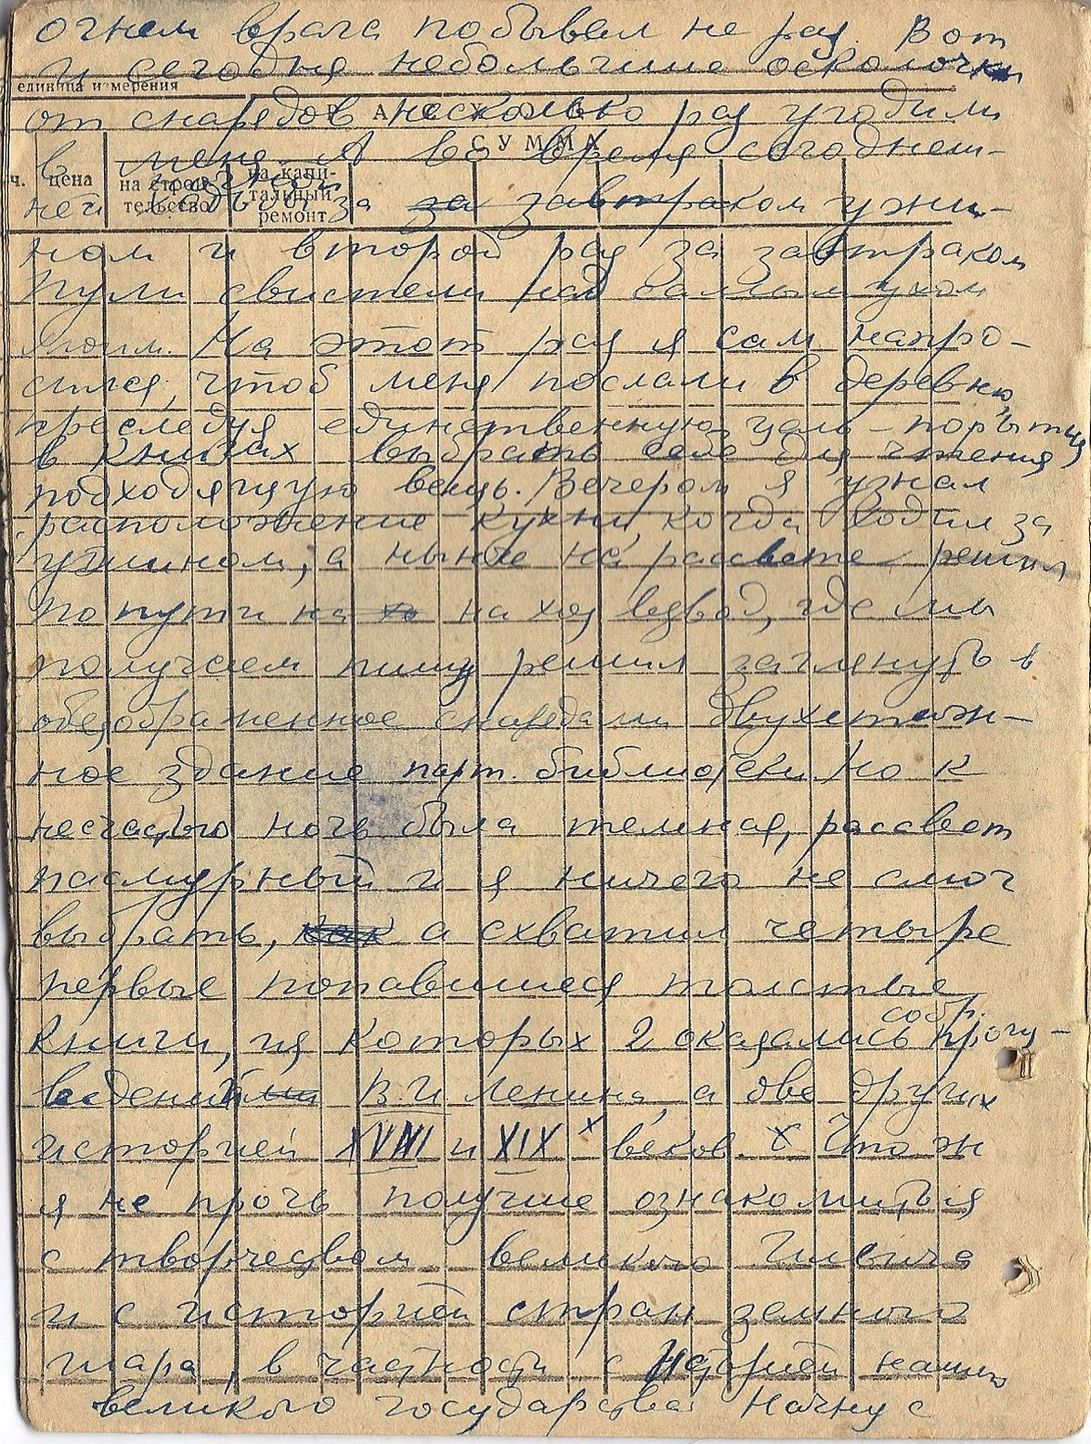 огнем врага побывал не раз. Вот
и сегодня небольшие осколочки
единица измерения
от снарядов несколько раз угодили
РАСХОД
СУММА
в меня. А во время сегоднеш-
ч. цена на строи-тельство на капи-тальный ремонт
ней ходьбы за за завтраком ужи-
ном и второй раз за завтраком
пули свистели над самым ухом
моим. На этот раз я сам напро-
сился, чтоб меня послали в деревню,
преследуя единственную цель – порыться
в книгах выбрать себе для чтения
подходящую вещь. Вечером я узнал
расположение кухни, когда ходил за
ужином, а ныне на рассвете решил
по пути на хо на хоз взвод, где мы
получаем пищу решил заглянуть в
обезображенное снарядами двухэтаж-
ное здание парт. библиотеки. Но к
несчастью ночь была темная, рассвет
пасмурный и я ничего не смог
выбрать, а схватил четыре
первые попавшиеся толстые
книги, из которых 2 оказались собр. произ-
ведений В. И Ленина, а две других
историей XVIII и XIX х веков. х Что ж
я не прочь получше ознакомиться
с творчеством великого Ильича
и с историей стран земного
шара, в частности с историей нашего
великого государства. Начну с